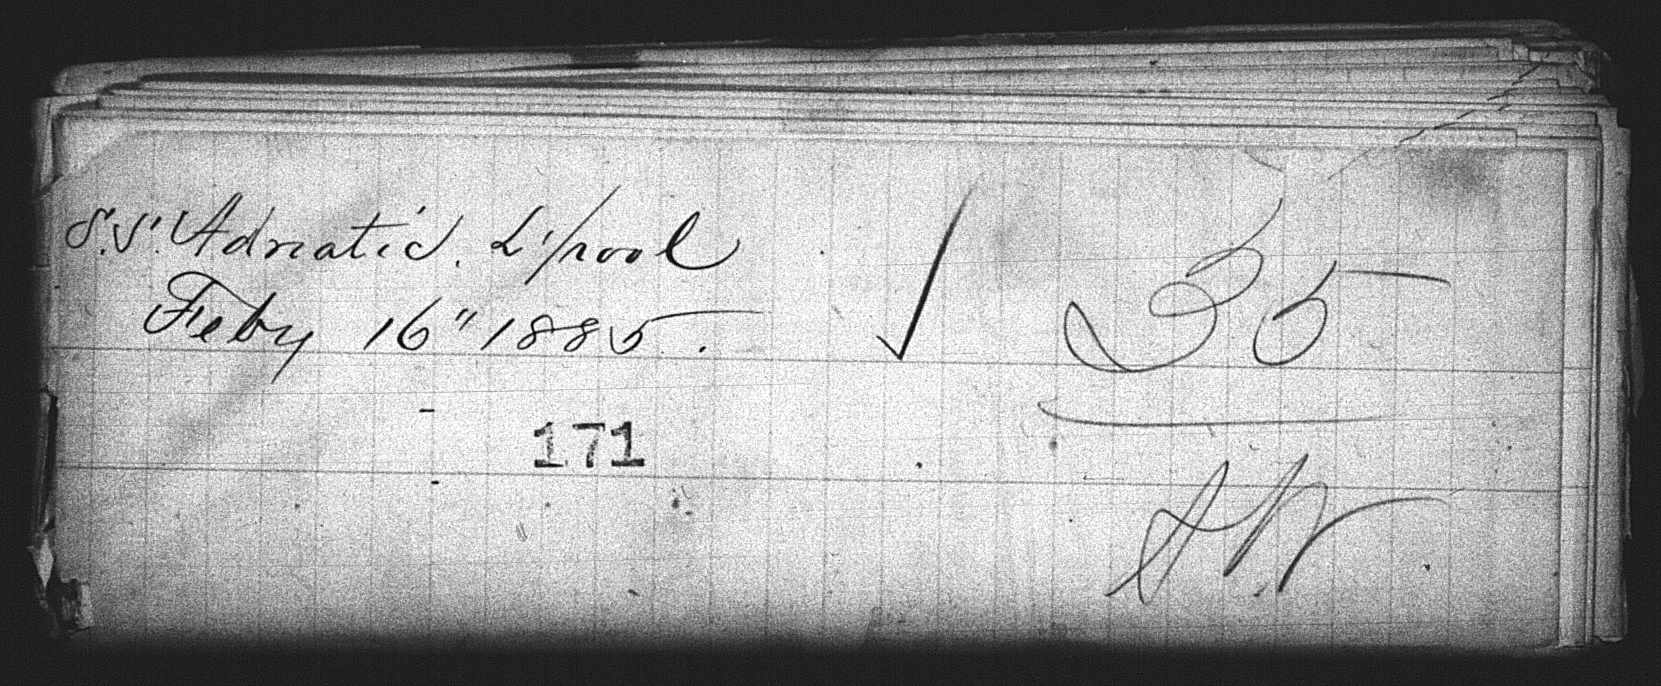 S.S. Adriatic. L'pool
Feby 16" 1885.
✓ 35
171